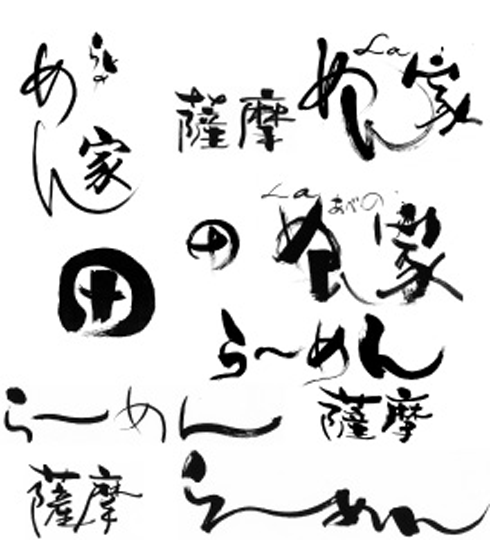 めん
家
薩摩
La
めん家
La
あべの
めん家
らーめん
らーめん
薩摩
薩摩
らーめん